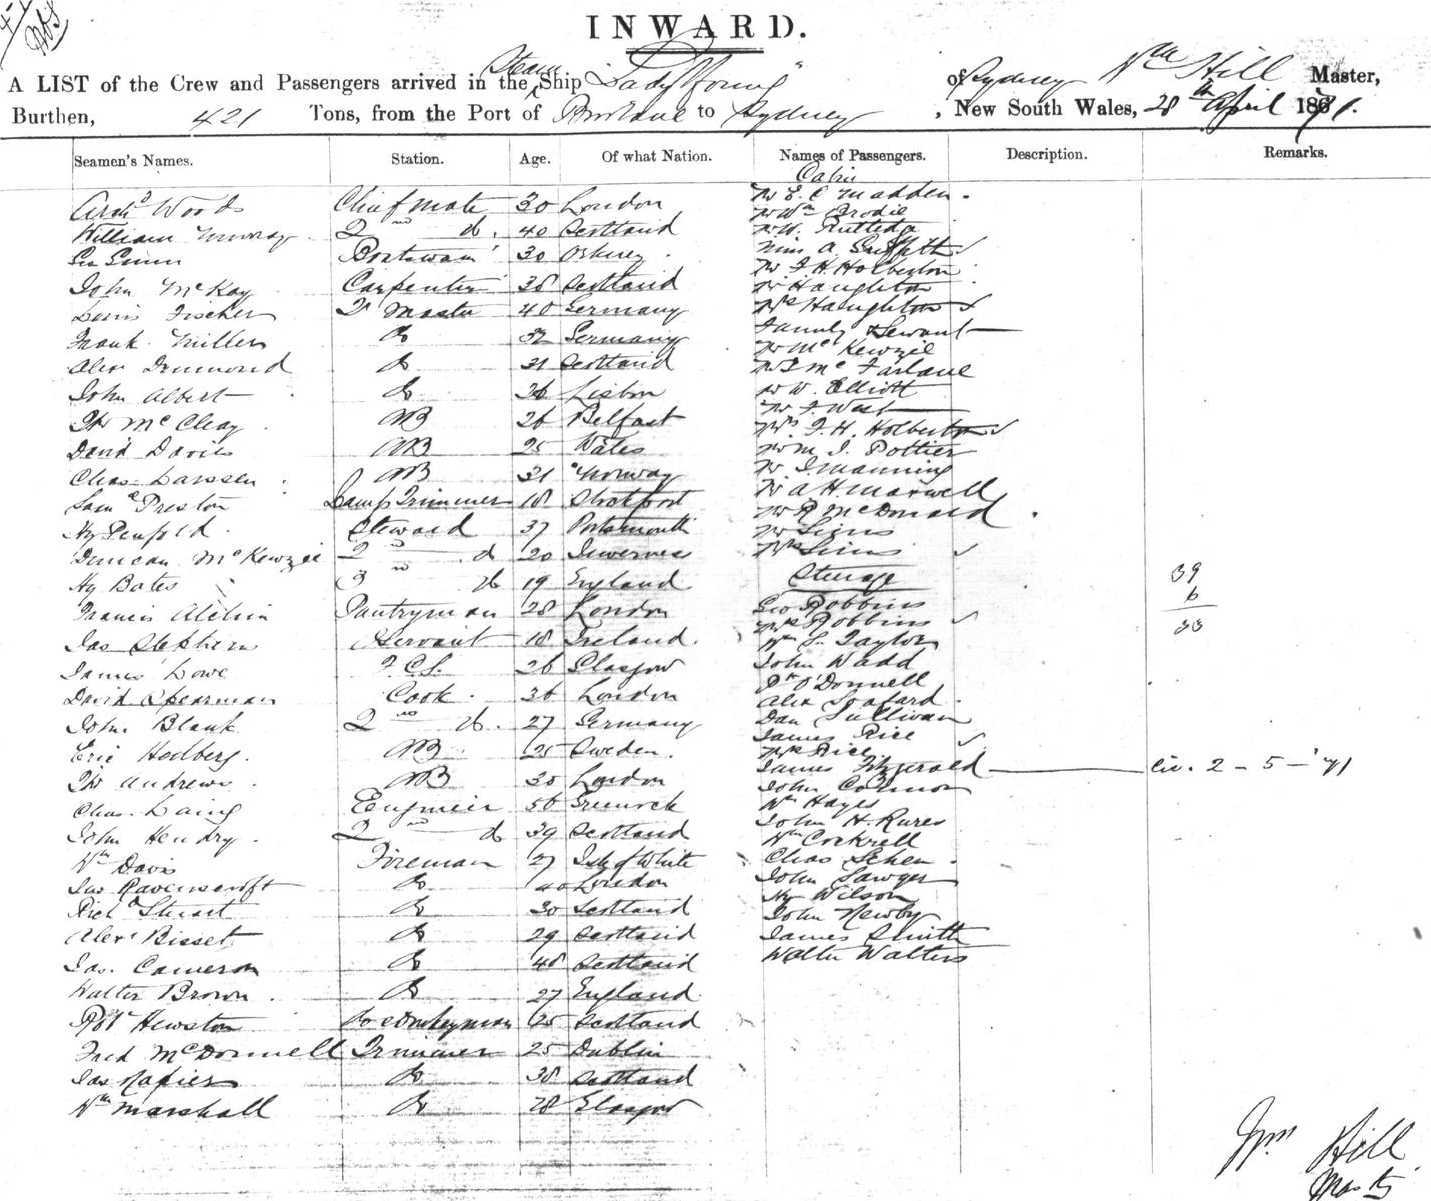 INWARD.
A LIST of the Crew and Passengers arrived in the Steam Ship "Lady Young" of Sydney Wm Hill Master,
Burthen, 421 Tons, from the Port of Brisbane to Sydney, New South Wales, 28th April 1871.
Seamen's Names. Station. Age. Of what Nation. Names of Passengers. Description. Remarks.
Cabin
Archd Woods Chief mate 30 London Mr E. C. Madden.
Mr Wm Brodie
William Murray 2nd do. 40 Scotland Mr W. Rutledge
Geo Gunn Boatswain 30 Orkney. Miss A Griffith
John McKay Carpenter 38 Scotland Mr F. H. Holberton
Mr Haughton
Louis Fischer Qr Master 40 Germany Mrs Haughton
Family & Servant
Frank Millers Do 32 Germany Mr McKenzie
Alexr Drummond Do 31 Scotland Mr McFarlane
John Albert Do 36 Lisbon Mr W. Elliott
Mr F West
McCleay AB 26 Belfast Mrs F. H. Holberton
David Davis AB 25 Wales Mr M. J. Pottier
Chas Larssen AB 31 Norway Mr J. Manning
Saml Preston Lamp Trimmer 18 Stratford Mr A H. Maxwell
Mr R McDonald
Hy Penfold Steward 37 Portsmouth Mr Sims
Duncan McKenzie 2nd do 20 Inverness Mrs Sims
Hy Bates 3rd do 19 England Steerage 39
6
Francis Pantryman 28 London Geo Robbins
Mrs Robbins 33
Jas Stephens Servant 18 Ireland. Wm S. Taylor
James Lowe F.C.S. 26 Glasgow John Wadd
O'Donnell
David Spearman Cook. 36 London Alex
John Blank 2nd do. 27 Germany Dan Sullivan
James Rice
Eric Hedberg. AB 25 Sweden. Mrs Rice
James Fitzgerald civ. 2 - 5 - '71
Andrews AB 30 London John Connor
Chas. Laing Engineer 56 Greenock Wm Hayes
John Hendry. 2nd do 39 Scotland John H.
Wm Cockrell
Wm Davis Fireman 27 Isle of White Chas
Jas Ravenscroft Do 40 London John Sawyer
Hy Wilson
Richd Stuart Do 30 Scotland John Newby
Alexr Bisset Do 29 Scotland James Smith
Jas. Cameron Do 48 Scotland Walter Walters
Walter Brown. Do 27 England.
Robt Hewston Do & Donkeyman 25 Scotland
Fred McDonnell Trimmer 25 Dublin
Jas Napier Do 38 Scotland
Wm Marshall Do 28 Glasgow
Wm Hill
Master